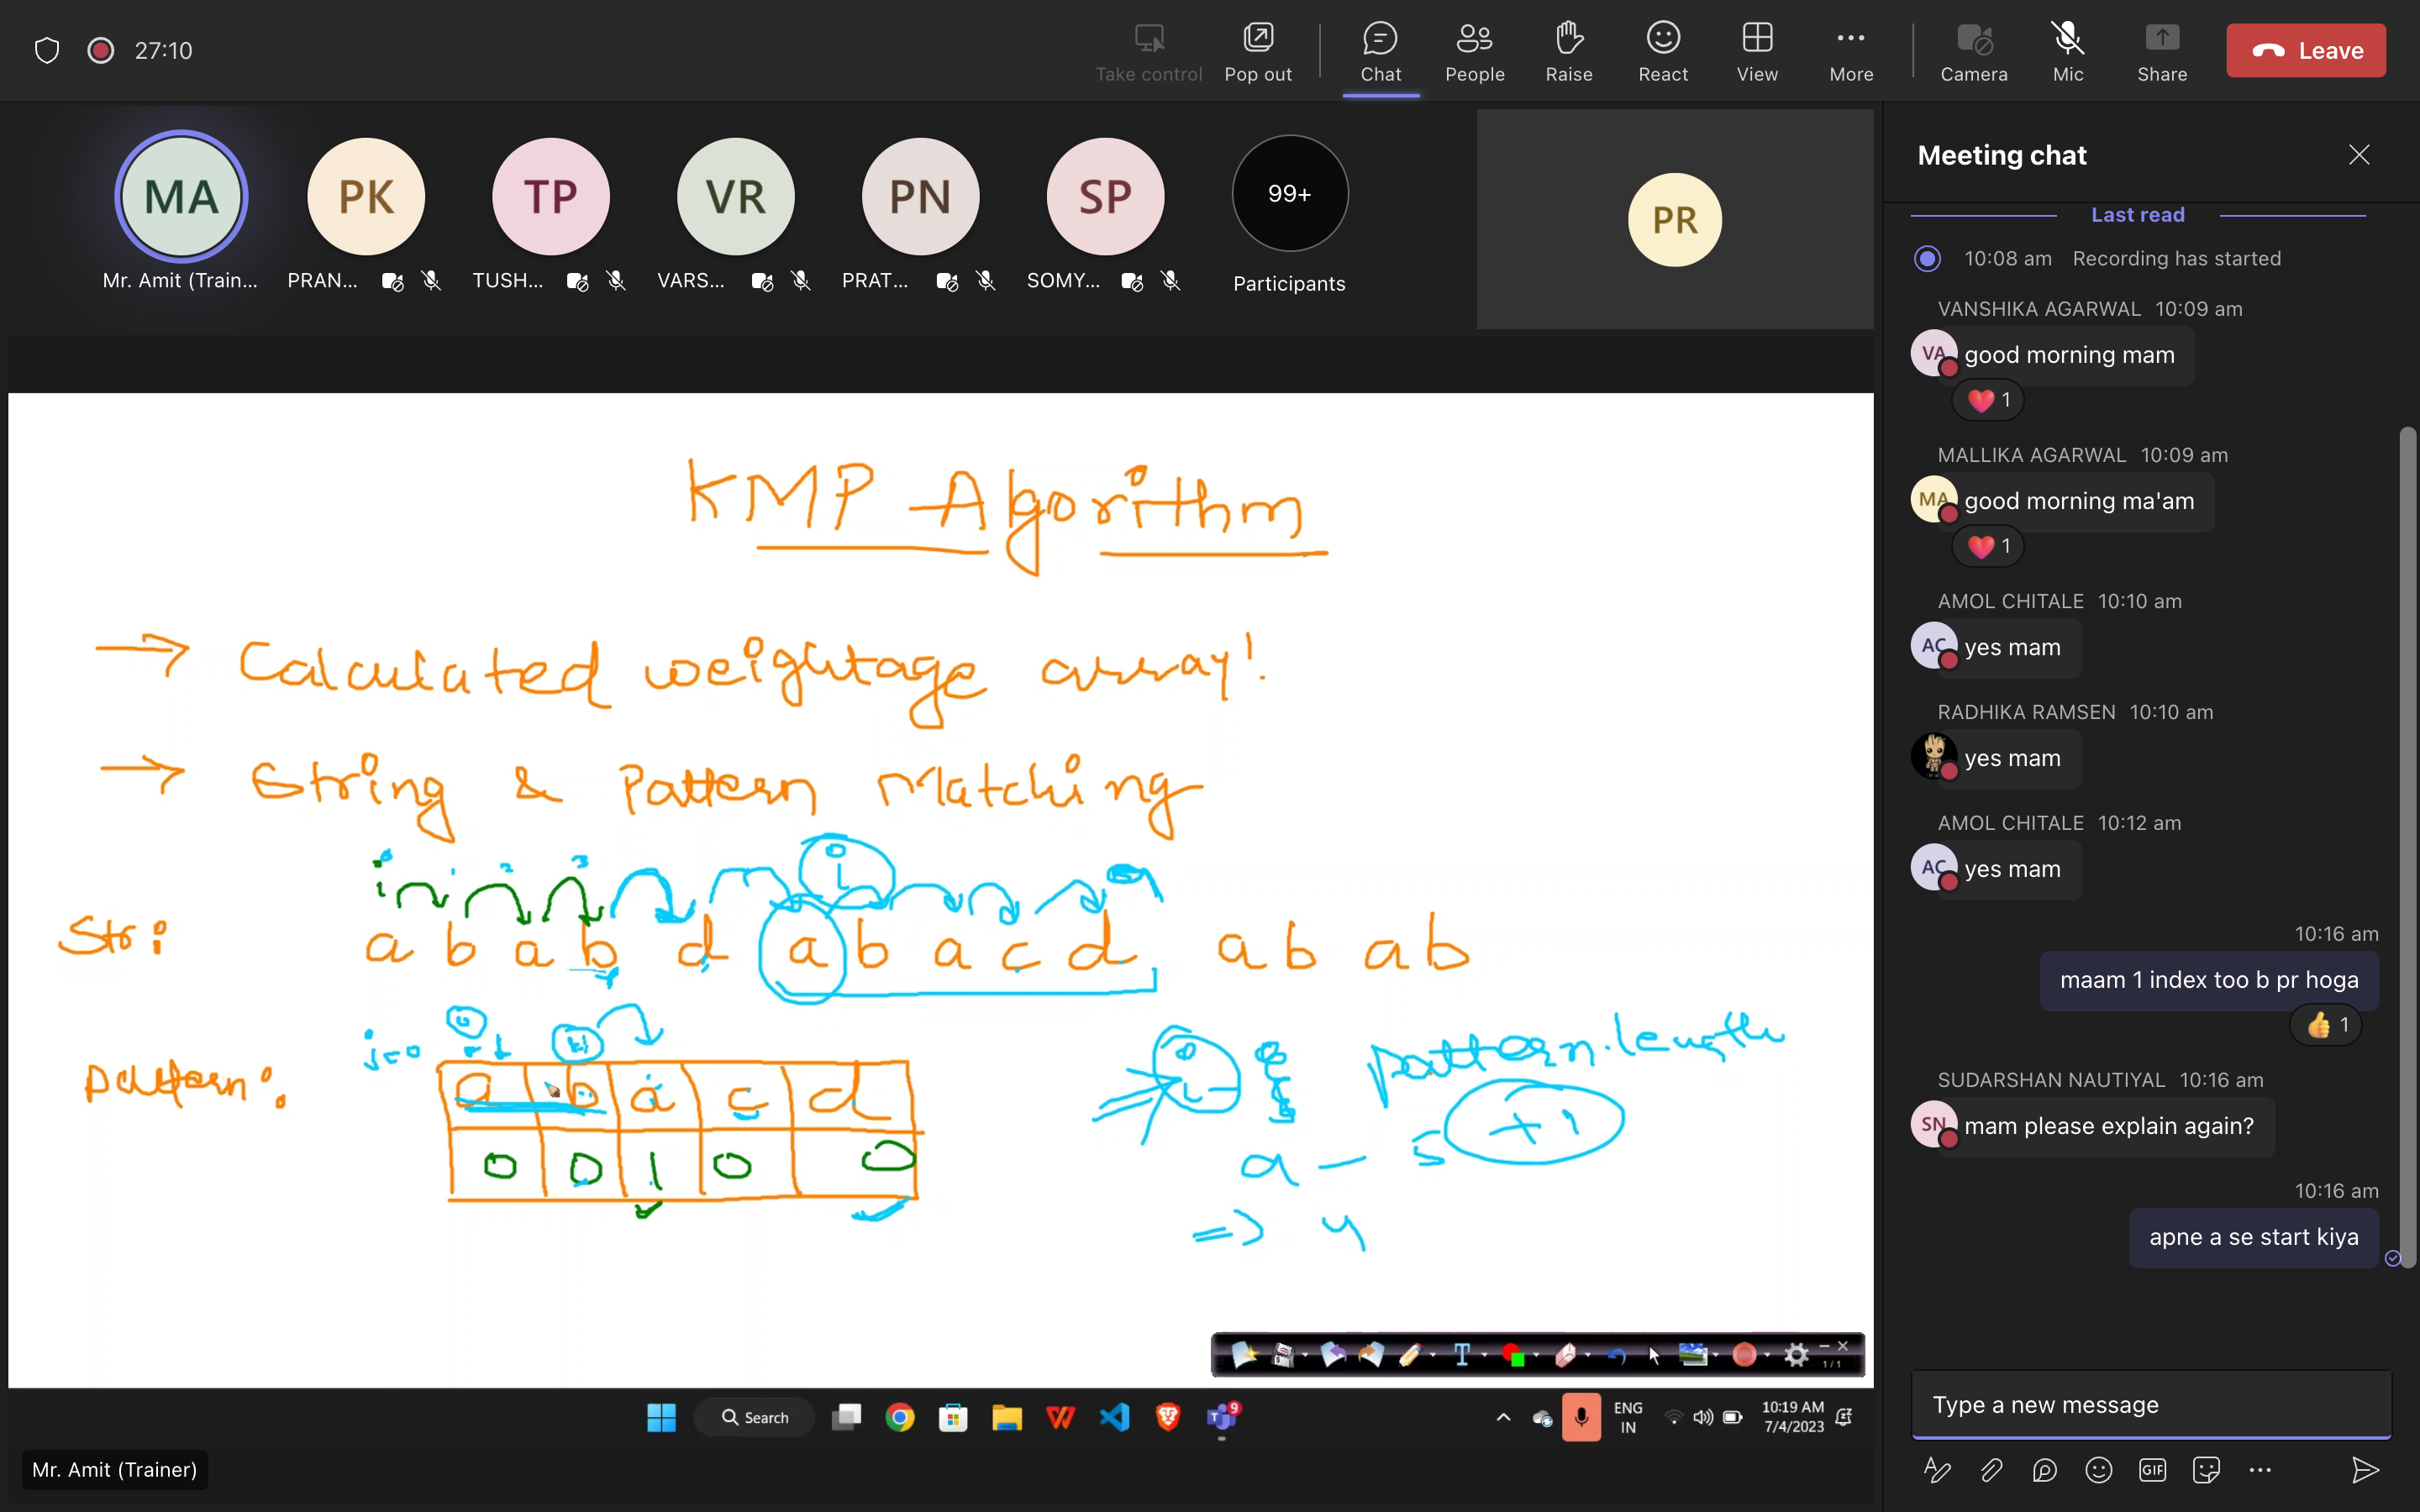 27:10
Take control Pop out Chat People Raise React View More Camera Mic Share Leave
MA PK TP VR PN SP 99+ PR
Mr. Amit (Train... PRAN... TUSH... VARS... PRAT... SOMY... Participants
KMP Algorithm
→ Calculated weightage array!
→ String & Pattern Matching
i 0 1 2 3
Str: a b a b d a b a c d a b a b
j=0
Pattern: a b a c d
0 0 1 0 0
pattern.length
+1
a - 5
=> 4
1/1
Search
9
ENG
IN
10:19 AM
7/4/2023
Mr. Amit (Trainer)
Meeting chat
Last read
10:08 am Recording has started
VANSHIKA AGARWAL 10:09 am
VA good morning mam
1
MALLIKA AGARWAL 10:09 am
MA good morning ma'am
1
AMOL CHITALE 10:10 am
AC yes mam
RADHIKA RAMSEN 10:10 am
yes mam
AMOL CHITALE 10:12 am
AC yes mam
10:16 am
maam 1 index too b pr hoga
1
SUDARSHAN NAUTIYAL 10:16 am
SN mam please explain again?
10:16 am
apne a se start kiya
Type a new message
GIF